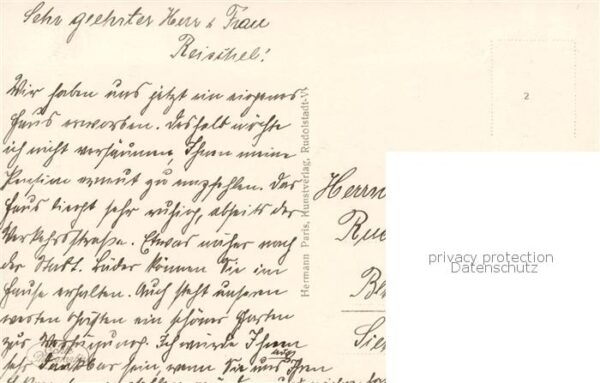 Sehr geehrter Herr u Frau
Reischel!
Wir haben uns jetzt ein eigenes
Haus erworben. Deshalb möchte
ich nicht versäumen, Ihnen meine
Pension erneut zu empfehlen. Das
Haus liegt sehr ruhig, abseits der
Verkehrsstraße. Etwas näher nach
der Stadt. Bäder können Sie im
Hause erhalten. Auch steht unseren
werten Gästen ein schöner Garten
zur Verfügung. Ich würde Ihnen
sehr dankbar sein, wenn Sie uns Ihren
Hermann Paris, Kunstverlag, Rudolstadt-V
2
Herrn
privacy protection
Datenschutz